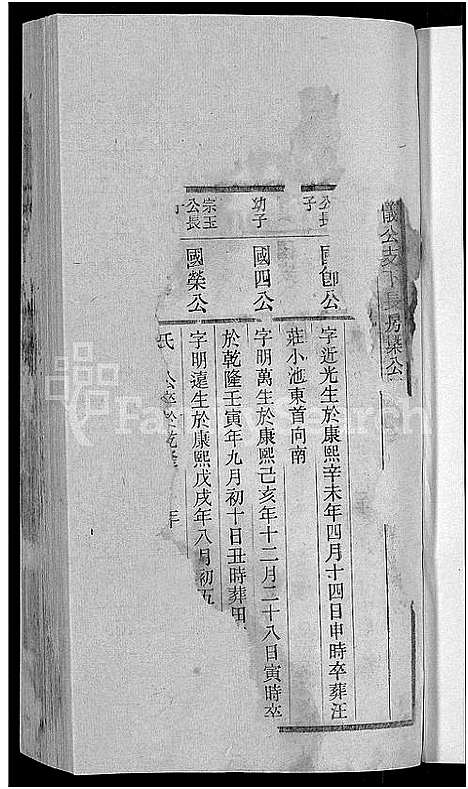 儀公支下長房榮公
公長子
國卽公
字近光生於康熙辛未年四月十四日申時卒葬汪
莊小池東首向南
幼子
國四公
字明萬生於康熙己亥年十二月二十八日寅時卒
於乾隆壬寅年九月初十日丑時葬田
宗玉公長子
國榮公
字明遠生於康熙戊戌年八月初五
氏 公卒於乾隆 年
FamilySearch